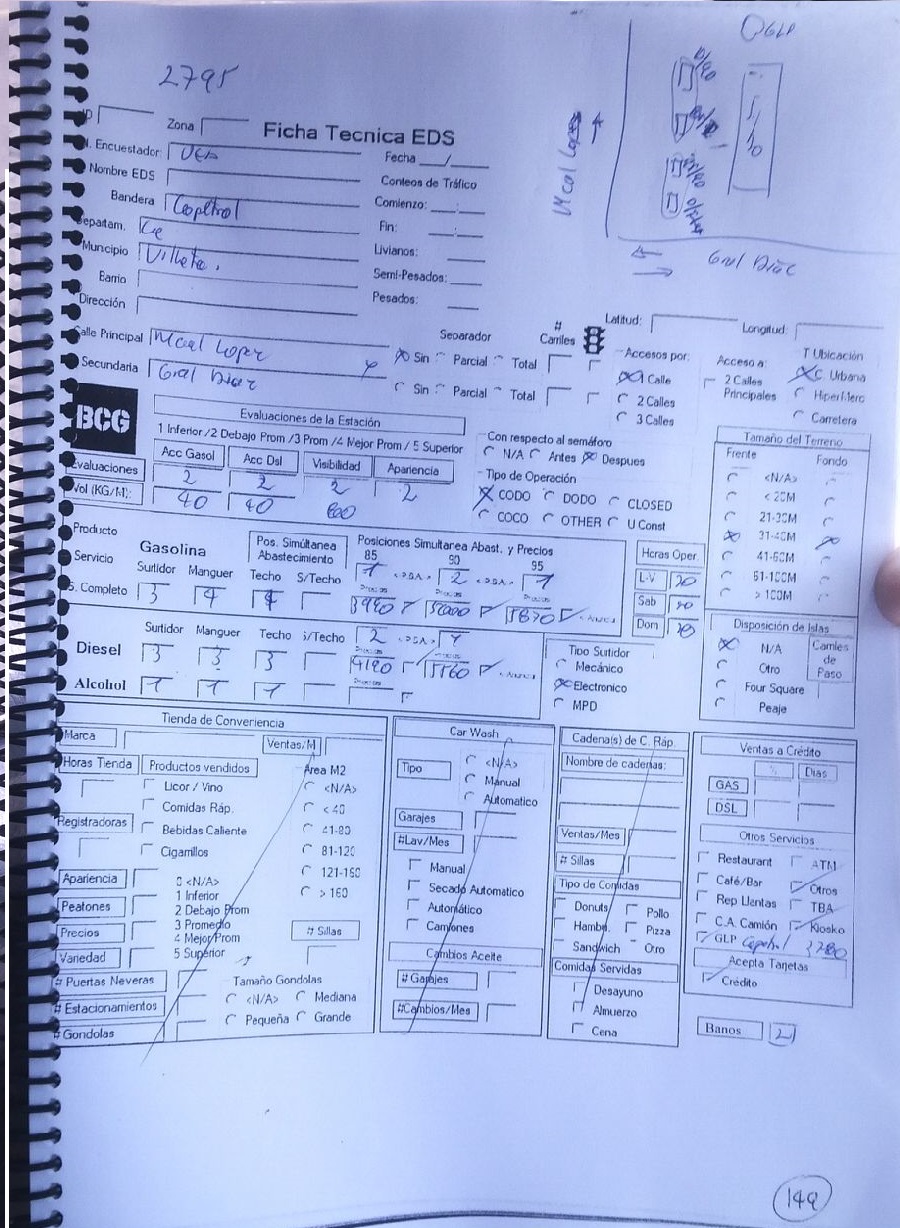 2795
GLP
ID
Zona
Ficha Tecnica EDS
N. Encuestador
Fecha __/__
Nombre EDS
Conteos de Tráfico
Bandera Copetrol
Comienzo: __:__
Mcal Lopez
Departam. Ce
Fin: __:__
Municipio Villeta.
Livianos:
Gral Diaz
Barrio
Semi-Pesados:
Dirección
Pesados:
Latitud:
Longitud:
Calle Principal Mcal Lopez
Separador
# Carriles
Sin Parcial Total
Accesos por:
Acceso a:
T Ubicación
Secundaria Gral Diaz
Sin Parcial Total
1 Calle
2 Calles
3 Calles
2 Calles Principales
Urbana
HiperMerc
Carretera
BCG
Evaluaciones de la Estación
1 Inferior /2 Debajo Prom /3 Prom /4 Mejor Prom / 5 Superior
Con respecto al semáforo
N/A Antes Despues
Acc Gasol Acc Dsl Visibilidad Apariencia
Evaluaciones 2 2 2 2
Vol (KG/M): 40 40 800
Tipo de Operación
CODO DODO CLOSED
COCO OTHER U Const
Tamaño del Terreno
Frente Fondo
<N/A>
< 20M
21-30M
31-40M
41-60M
61-100M
> 100M
Producto
Servicio
S. Completo
Gasolina
Pos. Simúltanea Abastecimiento
Posiciones Simultanea Abast. y Precios
85 90 95
1 2 1
Surtidor Manguer Techo S/Techo
3 4 4
3990 5000 5870
Horas Oper.
L-V 20
Sab 20
Dom 20
Diesel
Surtidor Manguer Techo S/Techo
3 3 3
2 1
4190 5560
Alcohol 1 1 1
Tipo Surtidor
Mecánico
Electronico
MPD
Disposición de Islas
N/A
Otro
Four Square
Peaje
Carriles de Paso
Tienda de Converiencia
Marca
Ventas/M
Horas Tienda
Productos vendidos
Licor / Vino
Comidas Ráp.
Bebidas Caliente
Cigarrillos
Registradoras
Área M2
<N/A>
< 40
41-80
81-120
121-160
> 160
Apariencia
Peatones
Precios
Variedad
0 <N/A>
1 Inferior
2 Debajo Prom
3 Promedio
4 Mejor Prom
5 Superior
# Sillas
# Puertas Neveras
# Estacionamientos
# Gondolas
Tamaño Gondolas
<N/A> Mediana
Pequeña Grande
Car Wash
Tipo
<N/A>
Manual
Automatico
Garajes
#Lav/Mes
Manual
Secado Automatico
Automático
Camiones
Cambios Aceite
# Garajes
#Cambios/Mes
Cadena(s) de C. Ráp.
Nombre de cadenas:
Ventas/Mes
# Sillas
Tipo de Comidas
Donuts Pollo
Hamb. Pizza
Sandwich Otro
Comidas Servidas
Desayuno
Almuerzo
Cena
Ventas a Crédito
% Dias
GAS
DSL
Otros Servicios
Restaurant ATM
Café/Bar Otros
Rep Llantas TBA
C.A. Camión Kiosko
GLP Copetrol
Acepta Tarjetas
Crédito
Banos 2
149